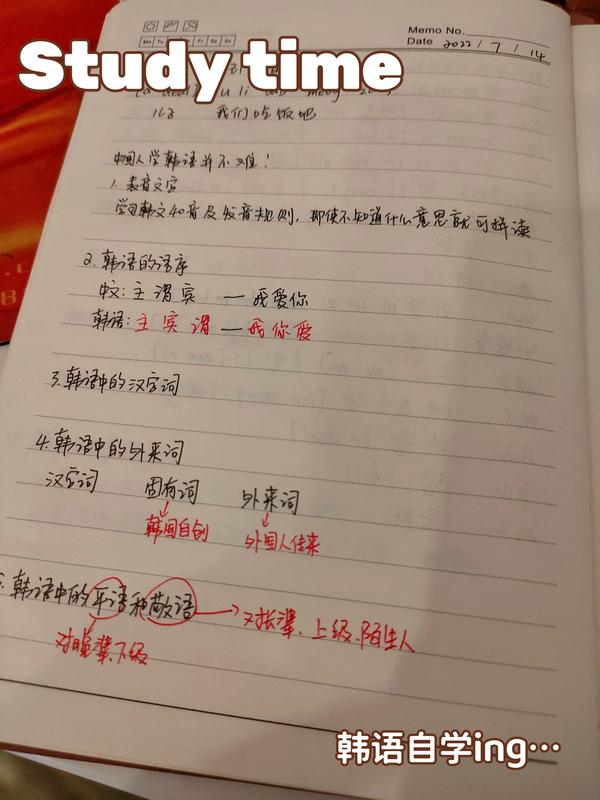 Memo No.
Mo Tu Fr Sa Su
Date 2022 / 7 / 14
Study time
我们吃饭吧
中国人学韩语并不难！
1. 表音文字
学习韩文40音及发音规则，即使不知道什么意思就可拼读
2. 韩语的语序
中文：主 谓 宾 — 我爱你
韩语：主 宾 谓 — 我 你 爱
3. 韩语中的汉字词
4. 韩语中的外来词
汉字词 固有词 外来词
韩国自创 外国人传来
韩语中的平语和敬语 → 对长辈、上级、陌生人
对晚辈、下级
韩语自学ing…